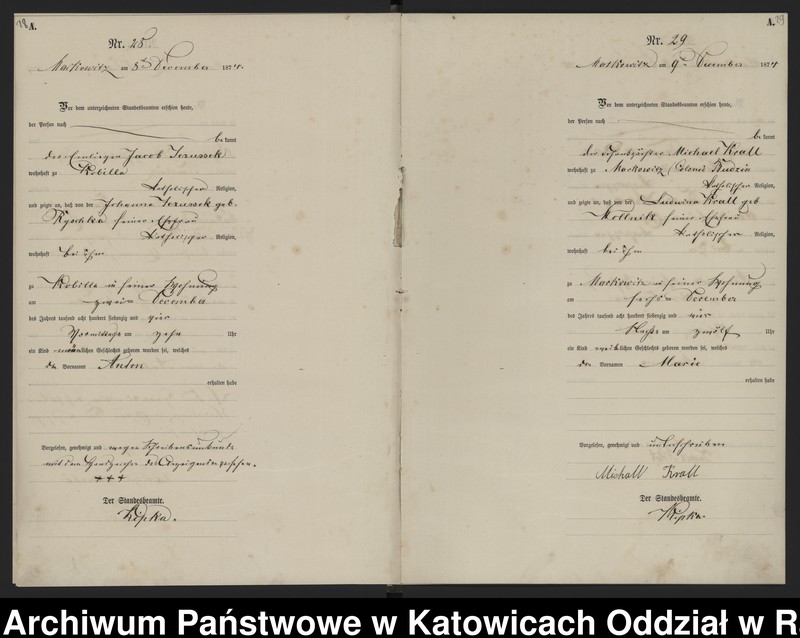 28
A.
Nr. 28.
Markowitz am 8ten December 1874.
Vor dem unterzeichneten Standesbeamten erschien heute,
der Person nach
bekannt
der Einlieger Jacob Jerussek
wohnhaft zu Kobilla
katholischer Religion,
und zeigte an, daß von der Johanna Jerussek geb.
Kyschka seiner Ehefrau
katholischer Religion,
wohnhaft bei ihm
zu Kobilla in seiner Wohnung
am zweiten December
des Jahres tausend acht hundert siebenzig und vier
Vormittags um zehn Uhr
ein Kind männlichen Geschlechts geboren worden sei, welches
den Vornamen Anton
erhalten habe
Vorgelesen, genehmigt und wegen Schreibensunkunde
mit dem Handzeichen des Anzeigenden versehen.
+++
Der Standesbeamte.
Kipka.
A.
29
Nr. 29
Markowitz am 9ten December 1874
Vor dem unterzeichneten Standesbeamten erschien heute,
der Person nach
bekannt
der Michael Krall
wohnhaft zu Markowitz Colonie Rudzin
katholischer Religion,
und zeigte an, daß von der Ludwina Krall geb
Mollnik seiner Ehefrau
katholischer Religion,
wohnhaft bei ihm
zu Markowitz in seiner Wohnung
am sechsten December
des Jahres tausend acht hundert siebenzig und vier
Nachts um zwölf Uhr
ein Kind weiblichen Geschlechts geboren worden sei, welches
den Vornamen Marie
erhalten habe
Vorgelesen, genehmigt und unterschrieben
Michall Krall
Der Standesbeamte.
Kipka.
Archiwum Państwowe w Katowicach Oddział w R